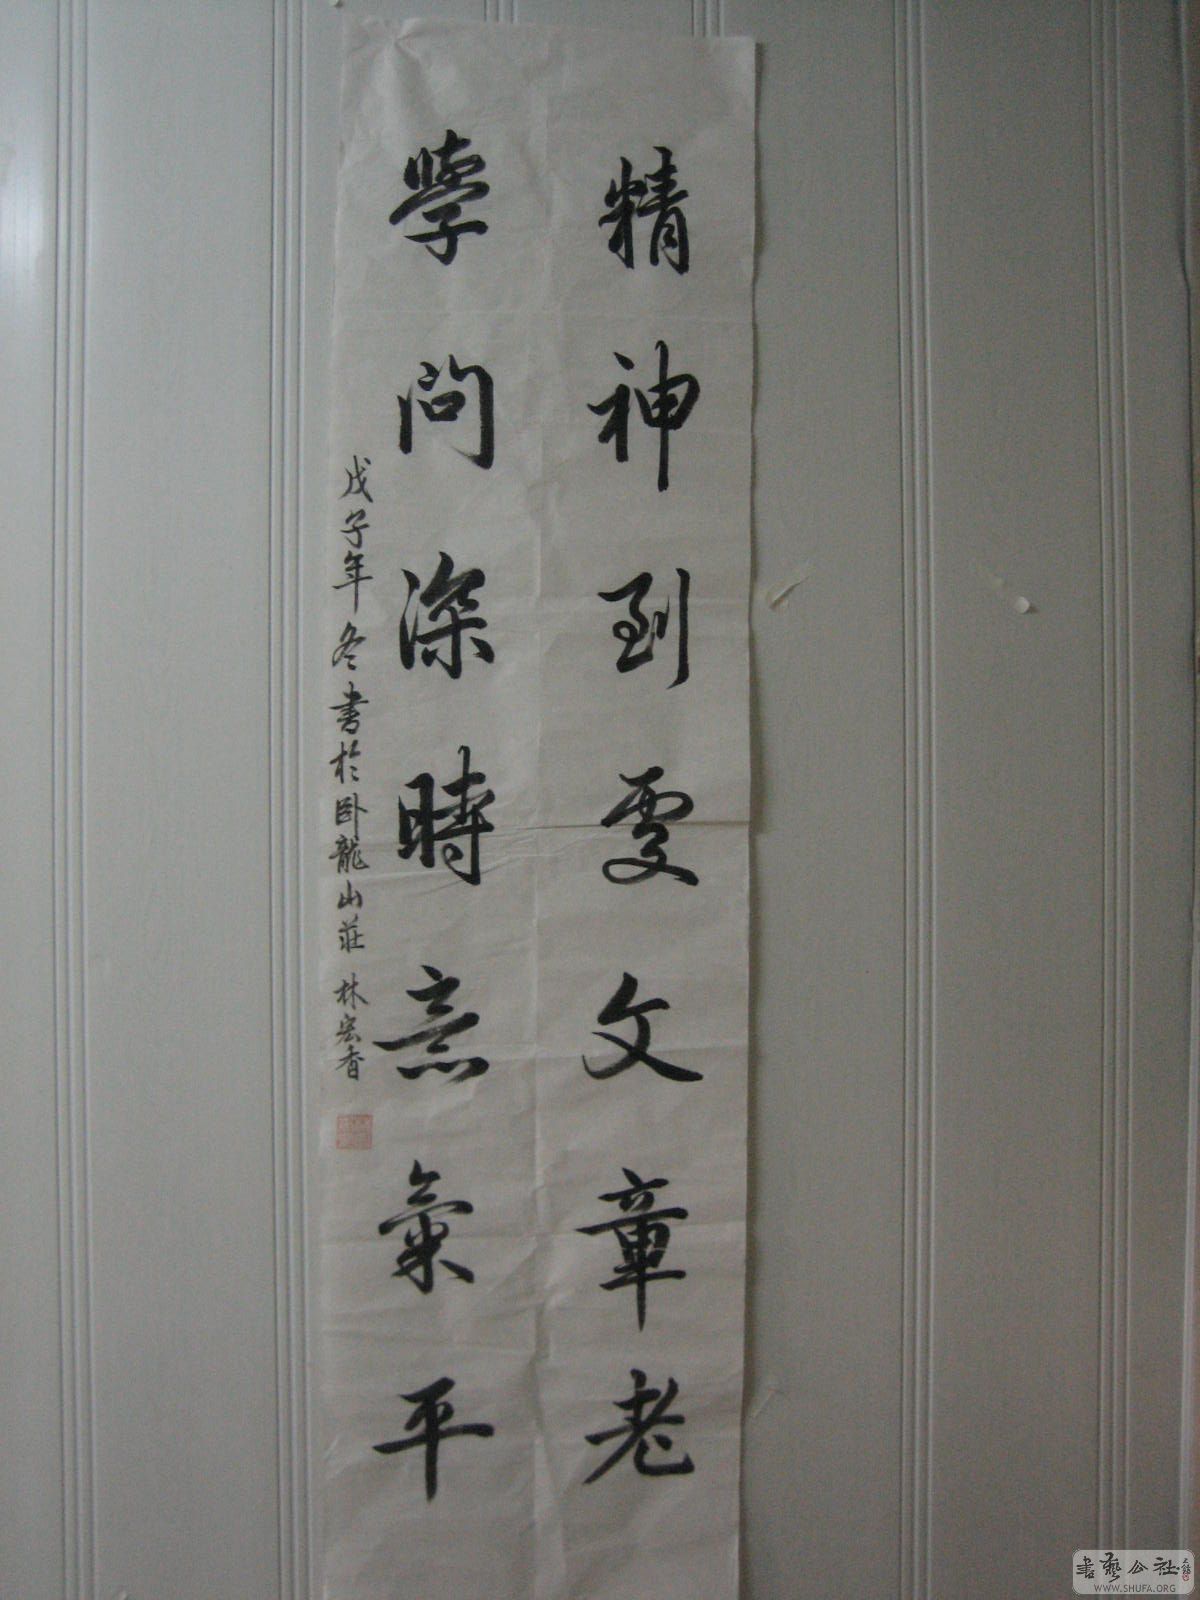 精神到處文章老
學問深時意氣平
戊子年冬書於卧龍山莊 林宏香
書藝公社
WWW.SHUFA.ORG